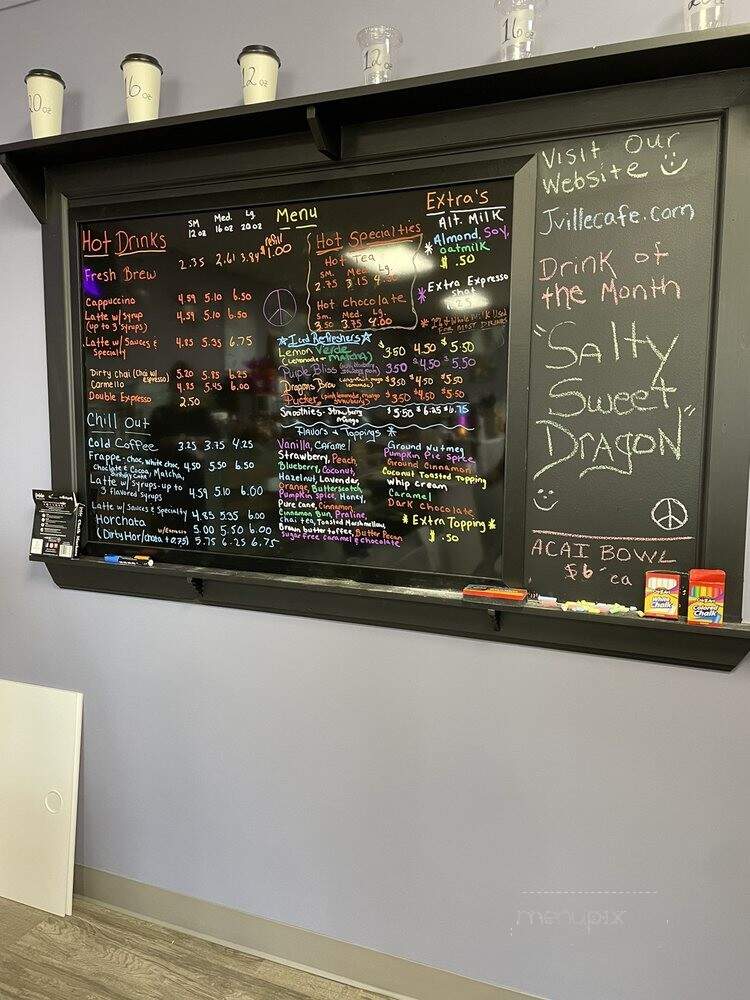 20 oz
16 oz
12 oz
12 oz
16 oz
Menu
SM Med. Lg.
12 oz 16 oz 20 oz
Hot Drinks
Fresh Brew 2.35 2.61 3.84 refill $1.00
Cappuccino 4.59 5.10 6.50
Latte w/ syrup 4.59 5.10 6.50
(up to 3 syrups)
Latte w/ Sauces & 4.85 5.35 6.75
Specialty
Dirty Chai (Chai w/ espresso) 5.20 5.85 6.25
Carmello 4.85 5.45 6.00
Double Espresso 2.50
Chill Out
Cold Coffee 3.25 3.75 4.25
Frappe - choc, white choc, 4.50 5.50 6.50
chocolate & Cocoa, Matcha,
birthday Cake
Latte w/ Syrups - up to 4.59 5.10 6.00
3 Flavored syrups
Latte w/ Sauces & Specialty 4.85 5.35 6.00
Horchata 5.00 5.50 6.00
(Dirty Horchata + 0.75) 5.75 6.25 6.75
Hot Specialties
Hot Tea
Sm. Med. Lg.
2.75 3.15
Hot chocolate
Sm. Med. Lg.
3.50 3.75 4.00
Iced Refreshers
Lemon Verde $3.50 4.50 $5.50
(Lemonade + Matcha)
Purple Bliss 3.50 $4.50 $5.50
Dragons Brew $3.50 $4.50 $5.50
Pucker (pink lemonade, mango 3.50 $4.50 5.50
strawberry)
Smoothies - Strawberry $5.50 $6.25 $6.75
mango
Flavors & Toppings
Vanilla, Caramel
Strawberry, Peach
Blueberry, Coconut,
Hazelnut, Lavender,
Orange, Butterscotch,
Pumpkin Spice, Honey,
Pure cane, Cinnamon
Cinnamon Bun, Praline,
chai tea, Toasted Marshmallow,
Brown butter toffee, Butter Pecan
Sugar free caramel & chocolate
Ground Nutmeg
Pumpkin Pie Spice
Ground Cinnamon
Coconut Toasted Topping
whip cream
Caramel
Dark chocolate
* Extra Topping *
$.50
Extra's
Alt. Milk
* Almond, Soy,
oatmilk
$.50
* Extra Expresso
shot
Visit Our
Website
Jvillecafe.com
Drink of
the Month
"Salty
Sweet
Dragon"
ACAI BOWL
$6 ea
White
Chalk
Colored
Chalk
menupix